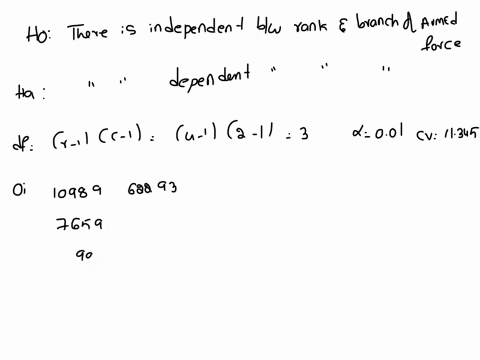 Ho: There is independent b/w rank & branch of Armed force
Ha: " " dependent " " "
df = (r-1) (c-1) = (4-1) (2-1) = 3 α = 0.01 CV: 11.345
Oi 10989 68893
7659
90